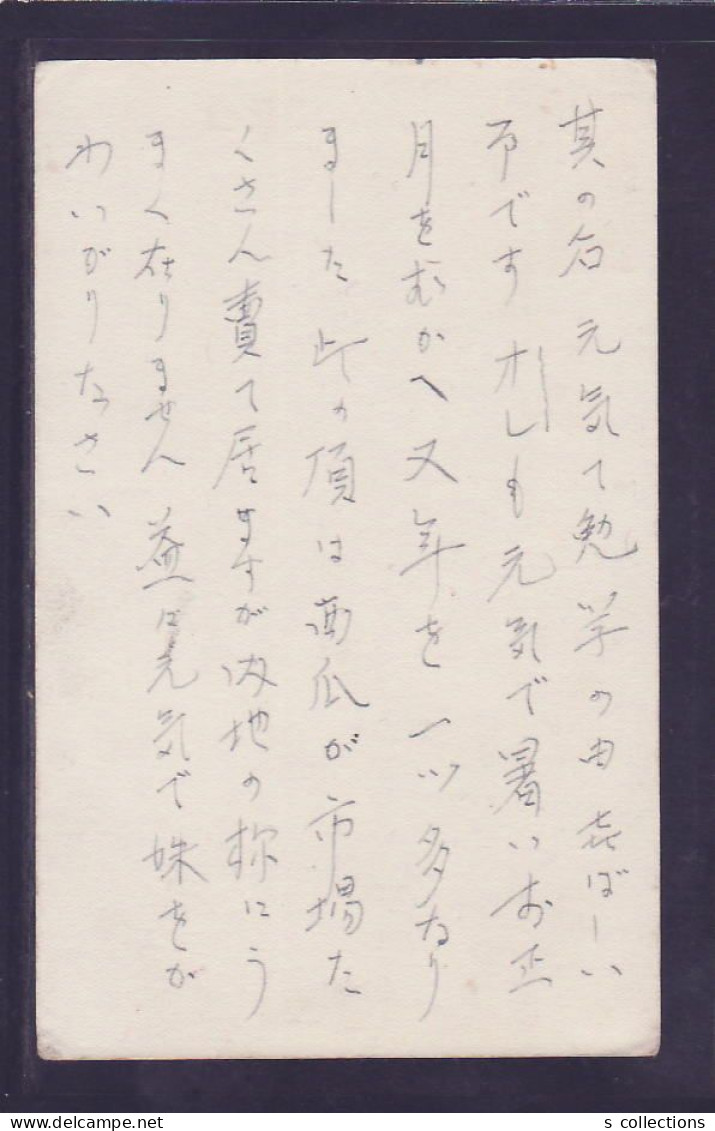 其の后 元気で勉学の由 喜ばしい
事です オレも元気で暑いお正
月をむかへ又年を一ツ多なり
ました 此の頃は西瓜が市場た
くさん賣て居ますが内地の様にう
まく在りません 益は元気で妹をか
わいがりなさい
s collections